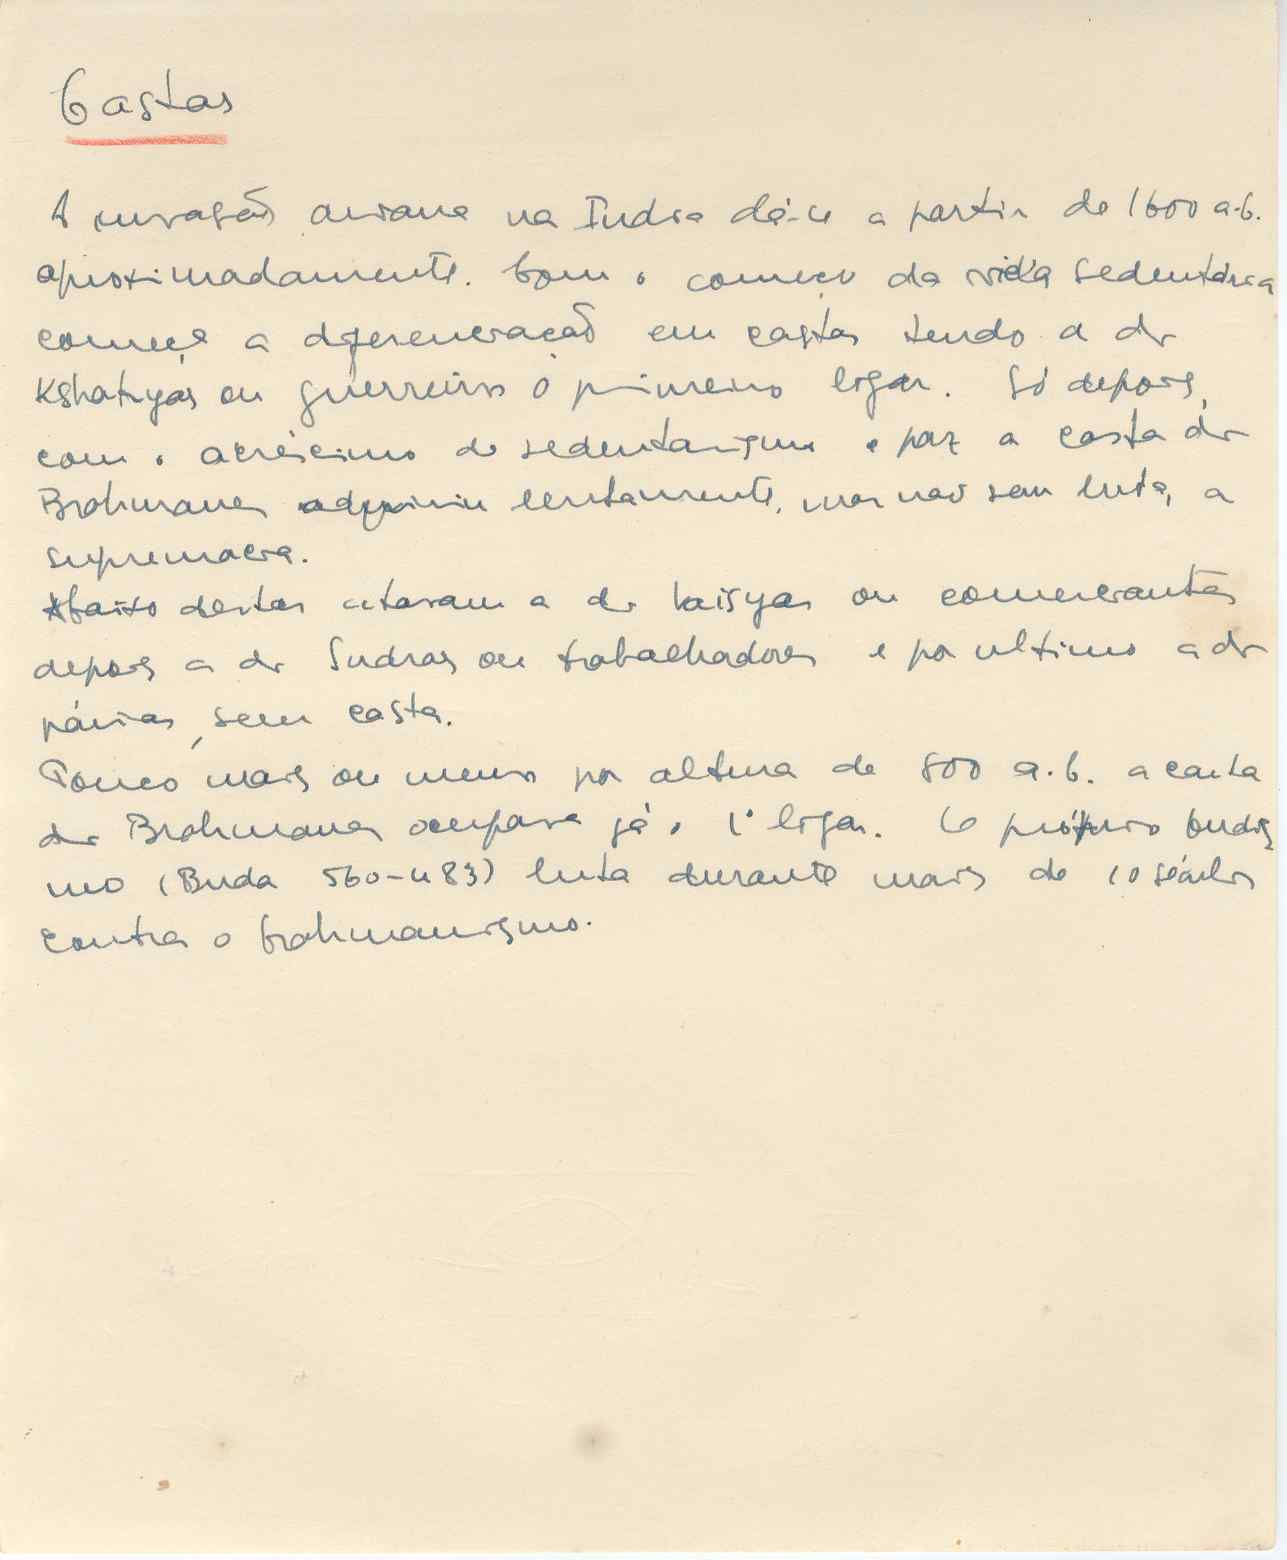 Castas
A invasão ariana na India dá-se a partir de 1600 a.C.
aproximadamente. Com o começo da vida sedentária
começa a diferenciação em castas tendo a dos
Kshatryas ou guerreiros o primeiro lugar. Só depois,
com o acréscimo do sedentarismo e paz a casta dos
Brahmanes adquiriu lentamente, mas não sem luta, a
supremacia.
Abaixo destas estavam a dos Vaisyas ou comerciantes
depois a dos Sudras ou trabalhadores e por ultimo a dos
párias, sem casta.
Pouco mais ou menos por altura de 800 a.C. a casta
dos Brahmanes ocupava já o 1º lugar. O próprio budis
mo (Buda 560-483) luta durante mais de 10 séculos
contra o brahmanismo.